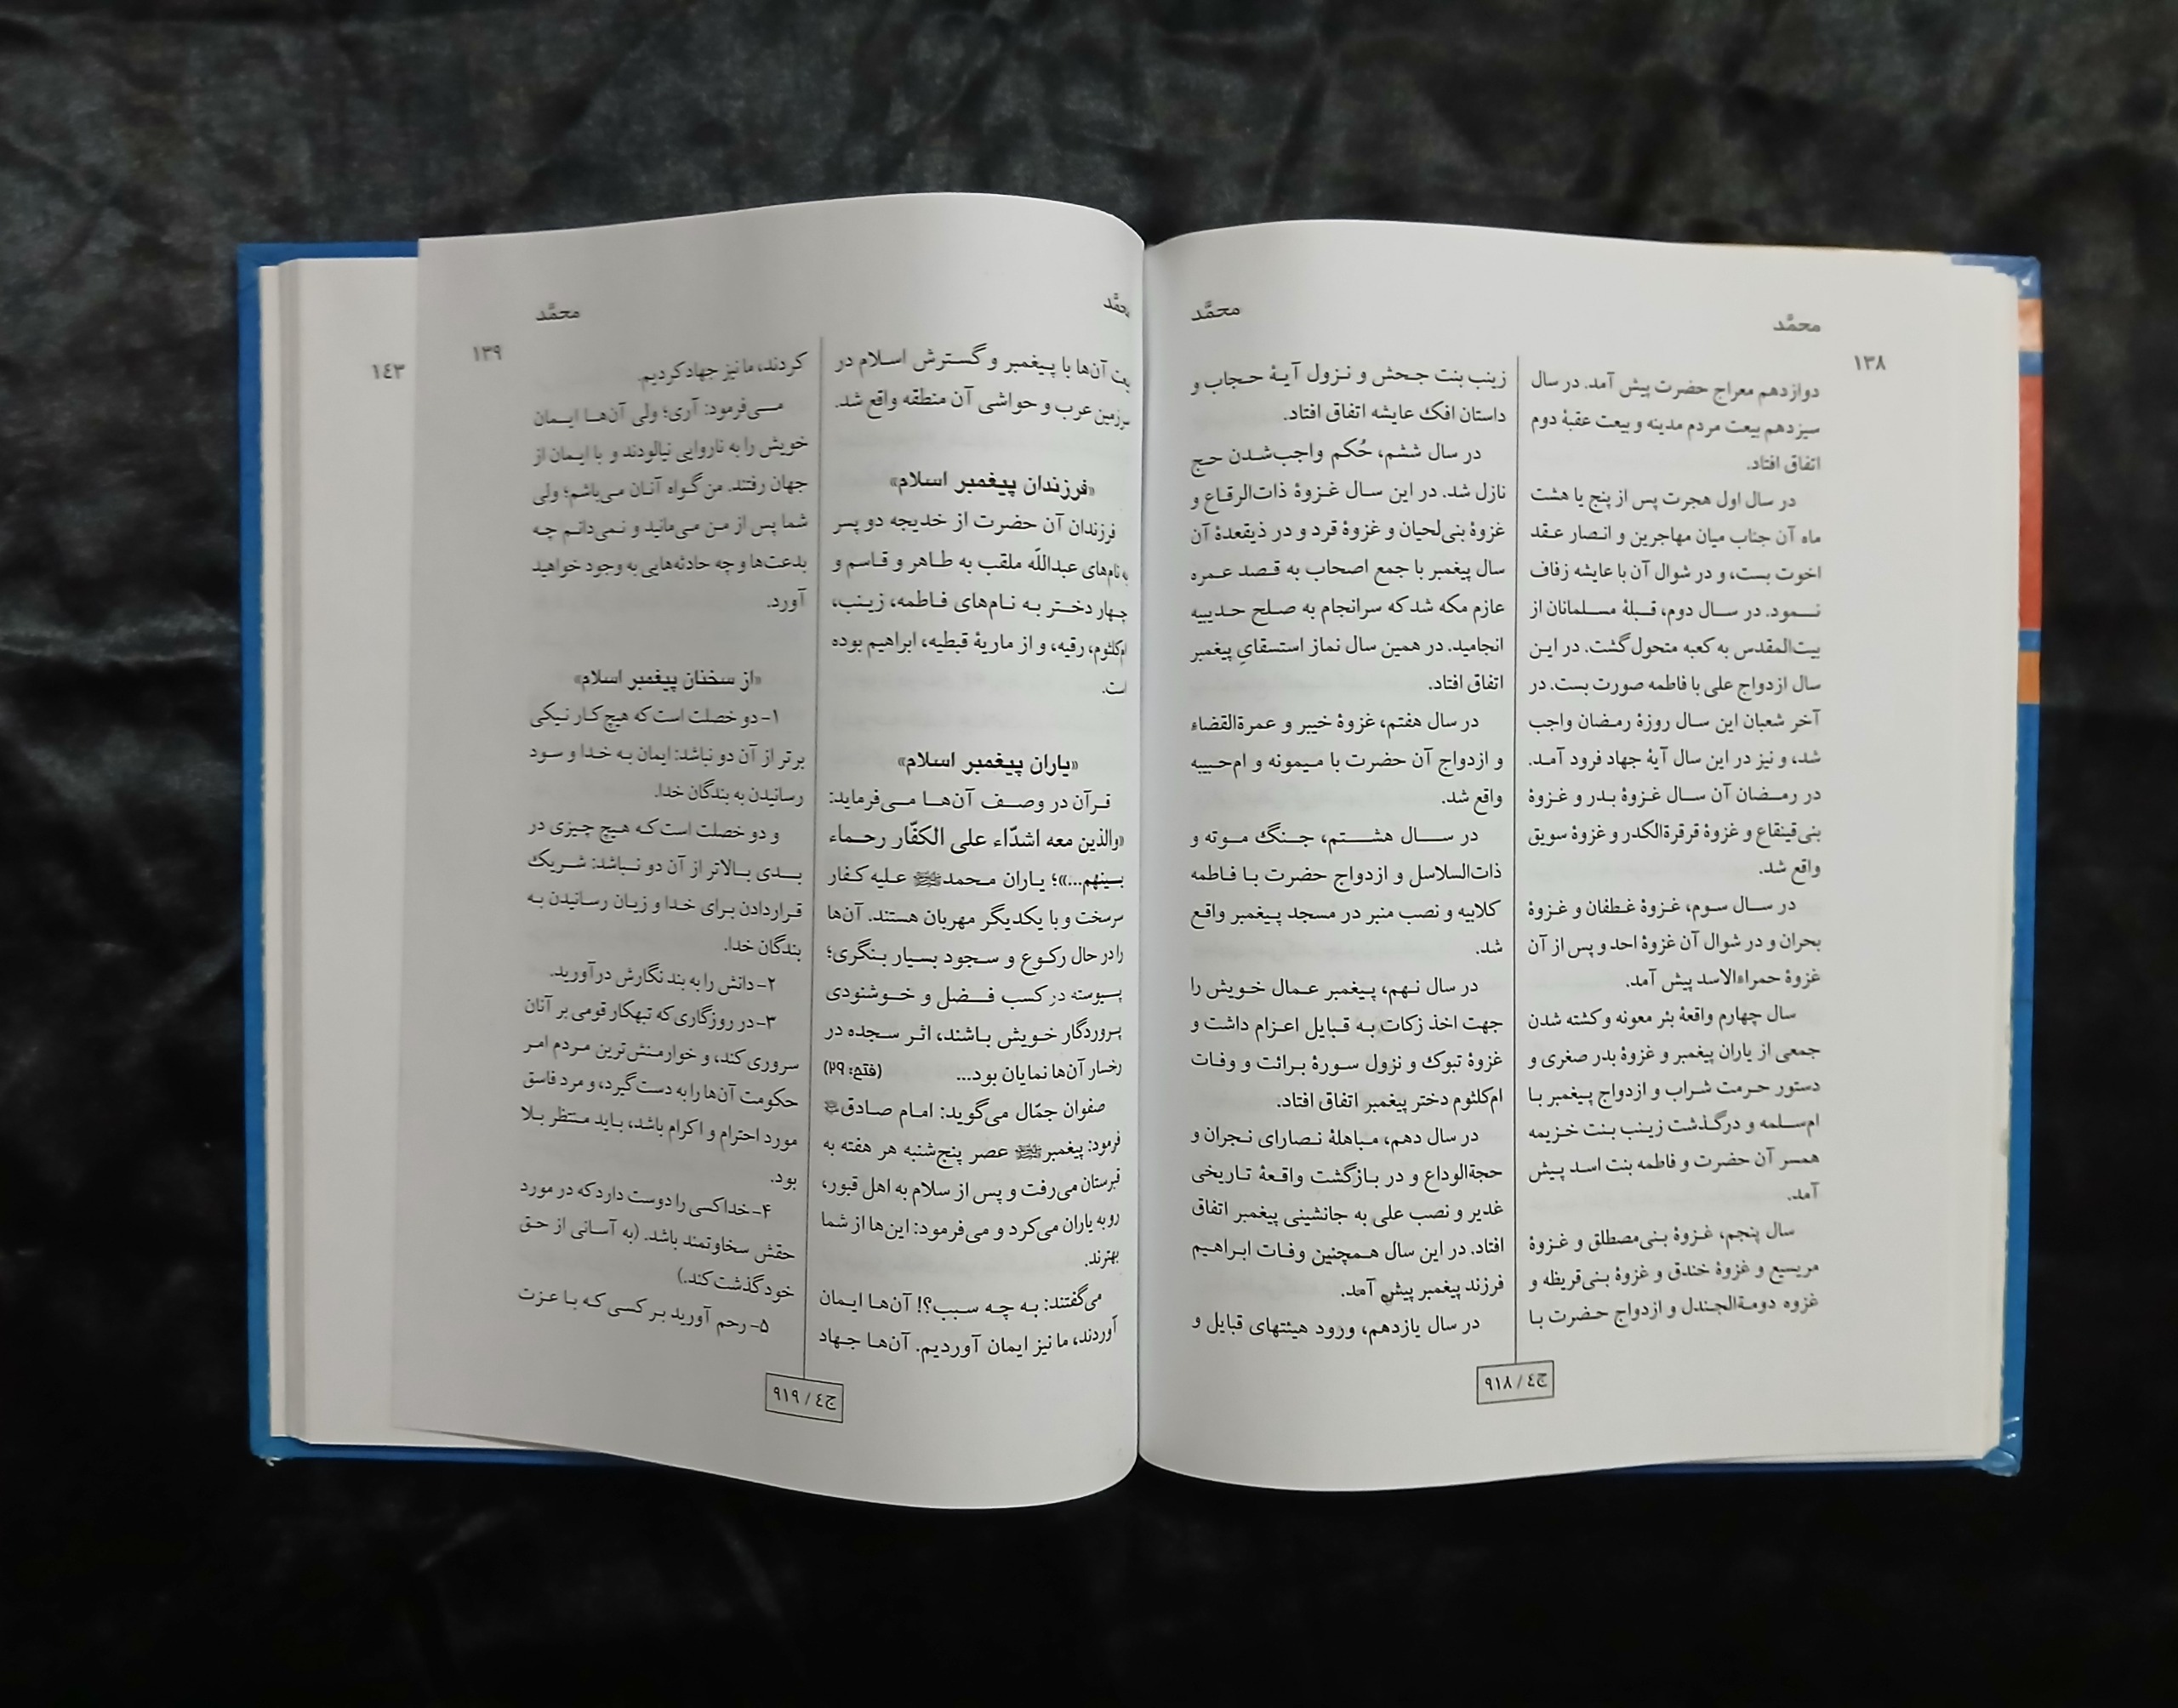 ۱۳۸
محمَّد
محمَّد
دوازدهم معراج حضرت پیش آمد. در سال
سیزدهم بیعت مردم مدینه و بیعت عقبهٔ دوم
اتفاق افتاد.
در سال اول هجرت پس از پنج یا هشت
ماه آن جناب میان مهاجرین و انصار عقد
اخوت بست، و در شوال آن با عایشه زفاف
نمود. در سال دوم، قبلهٔ مسلمانان از
بیت‌المقدس به کعبه متحول گشت. در این
سال ازدواج علی با فاطمه صورت بست. در
آخر شعبان این سال روزهٔ رمضان واجب
شد، و نیز در این سال آیهٔ جهاد فرود آمد.
در رمضان آن سال غزوهٔ بدر و غزوهٔ
بنی‌قینقاع و غزوهٔ قرقرةالکدر و غزوهٔ سویق
واقع شد.
در سال سوم، غزوهٔ غطفان و غزوهٔ
بحران و در شوال آن غزوهٔ احد و پس از آن
غزوهٔ حمراءالاسد پیش آمد.
سال چهارم واقعهٔ بئر معونه و کشته شدن
جمعی از یاران پیغمبر و غزوهٔ بدر صغری و
دستور حرمت شراب و ازدواج پیغمبر با
ام‌سلمه و درگذشت زینب بنت خزیمه
همسر آن حضرت و فاطمه بنت اسد پیش
آمد.
سال پنجم، غزوهٔ بنی‌مصطلق و غزوهٔ
مریسیع و غزوهٔ خندق و غزوهٔ بنی‌قریظه و
غزوه دومةالجندل و ازدواج حضرت با
زینب بنت جحش و نزول آیهٔ حجاب و
داستان افک عایشه اتفاق افتاد.
در سال ششم، حُکم واجب‌شدن حج
نازل شد. در این سال غزوهٔ ذات‌الرقاع و
غزوهٔ بنی‌لحیان و غزوهٔ قرد و در ذیقعدهٔ آن
سال پیغمبر با جمع اصحاب به قصد عمره
عازم مکه شد که سرانجام به صلح حدیبیه
انجامید. در همین سال نماز استسقایِ پیغمبر
اتفاق افتاد.
در سال هفتم، غزوهٔ خیبر و عمرةالقضاء
و ازدواج آن حضرت با میمونه و ام‌حبیبه
واقع شد.
در سال هشتم، جنگ موته و
ذات‌السلاسل و ازدواج حضرت با فاطمه
کلابیه و نصب منبر در مسجد پیغمبر واقع
شد.
در سال نهم، پیغمبر عمال خویش را
جهت اخذ زکات به قبایل اعزام داشت و
غزوهٔ تبوک و نزول سورهٔ برائت و وفات
ام‌کلثوم دختر پیغمبر اتفاق افتاد.
در سال دهم، مباهلهٔ نصارای نجران و
حجةالوداع و در بازگشت واقعهٔ تاریخی
غدیر و نصب علی به جانشینی پیغمبر اتفاق
افتاد. در این سال همچنین وفات ابراهیم
فرزند پیغمبر پیش آمد.
در سال یازدهم، ورود هیئتهای قبایل و
ج٤ / ۹۱۸
محمَّد
محمَّد
۱۳۹
۱٤۳
آن‌ها با پیغمبر و گسترش اسلام در
سرزمین عرب و حواشی آن منطقه واقع شد.
«فرزندان پیغمبر اسلام»
فرزندان آن حضرت از خدیجه دو پسر
به نام‌های عبداللّه ملقب به طاهر و قاسم و
چهار دختر به نام‌های فاطمه، زینب،
ام‌کلثوم، رقیه، و از ماریهٔ قبطیه، ابراهیم بوده
است.
«یاران پیغمبر اسلام»
قرآن در وصف آن‌ها می‌فرماید:
«والذین معه اشدّاء علی الکفّار رحماء
بینهم...»؛ یاران محمدﷺ علیه کفار
سرسخت و با یکدیگر مهربان هستند. آن‌ها
را در حال رکوع و سجود بسیار بنگری؛
پیوسته در کسب فضل و خوشنودی
پروردگار خویش باشند، اثر سجده در
رخسار آن‌ها نمایان بود... (فتح: ۲۹)
صفوان جمّال می‌گوید: امام صادق
فرمود: پیغمبرﷺ عصر پنج‌شنبه هر هفته به
قبرستان می‌رفت و پس از سلام به اهل قبور،
رو به یاران می‌کرد و می‌فرمود: این‌ها از شما
بهترند.
می‌گفتند: به چه سبب؟! آن‌ها ایمان
آوردند، ما نیز ایمان آوردیم. آن‌ها جهاد
کردند، ما نیز جهاد کردیم.
می‌فرمود: آری؛ ولی آن‌ها ایمان
خویش را به ناروایی نیالودند و با ایمان از
جهان رفتند. من گواه آنان می‌باشم؛ ولی
شما پس از من می‌مانید و نمی‌دانم چه
بدعت‌ها و چه حادثه‌هایی به وجود خواهید
آورد.
«از سخنان پیغمبر اسلام»
۱- دو خصلت است که هیچ کار نیکی
برتر از آن دو نباشد: ایمان به خدا و سود
رسانیدن به بندگان خدا.
و دو خصلت است که هیچ چیزی در
بدی بالاتر از آن دو نباشد: شریک
قراردادن برای خدا و زیان رسانیدن به
بندگان خدا.
۲- دانش را به بند نگارش درآورید.
۳- در روزگاری که تبهکار قومی بر آنان
سروری کند، و خوارمنش‌ترین مردم امر
حکومت آن‌ها را به دست گیرد، و مرد فاسق
مورد احترام و اکرام باشد، باید منتظر بلا
بود.
۴- خدا کسی را دوست دارد که در مورد
حقش سخاوتمند باشد. (به آسانی از حق
خود گذشت کند.)
۵- رحم آورید بر کسی که با عزت
ج٤ / ۹۱۹